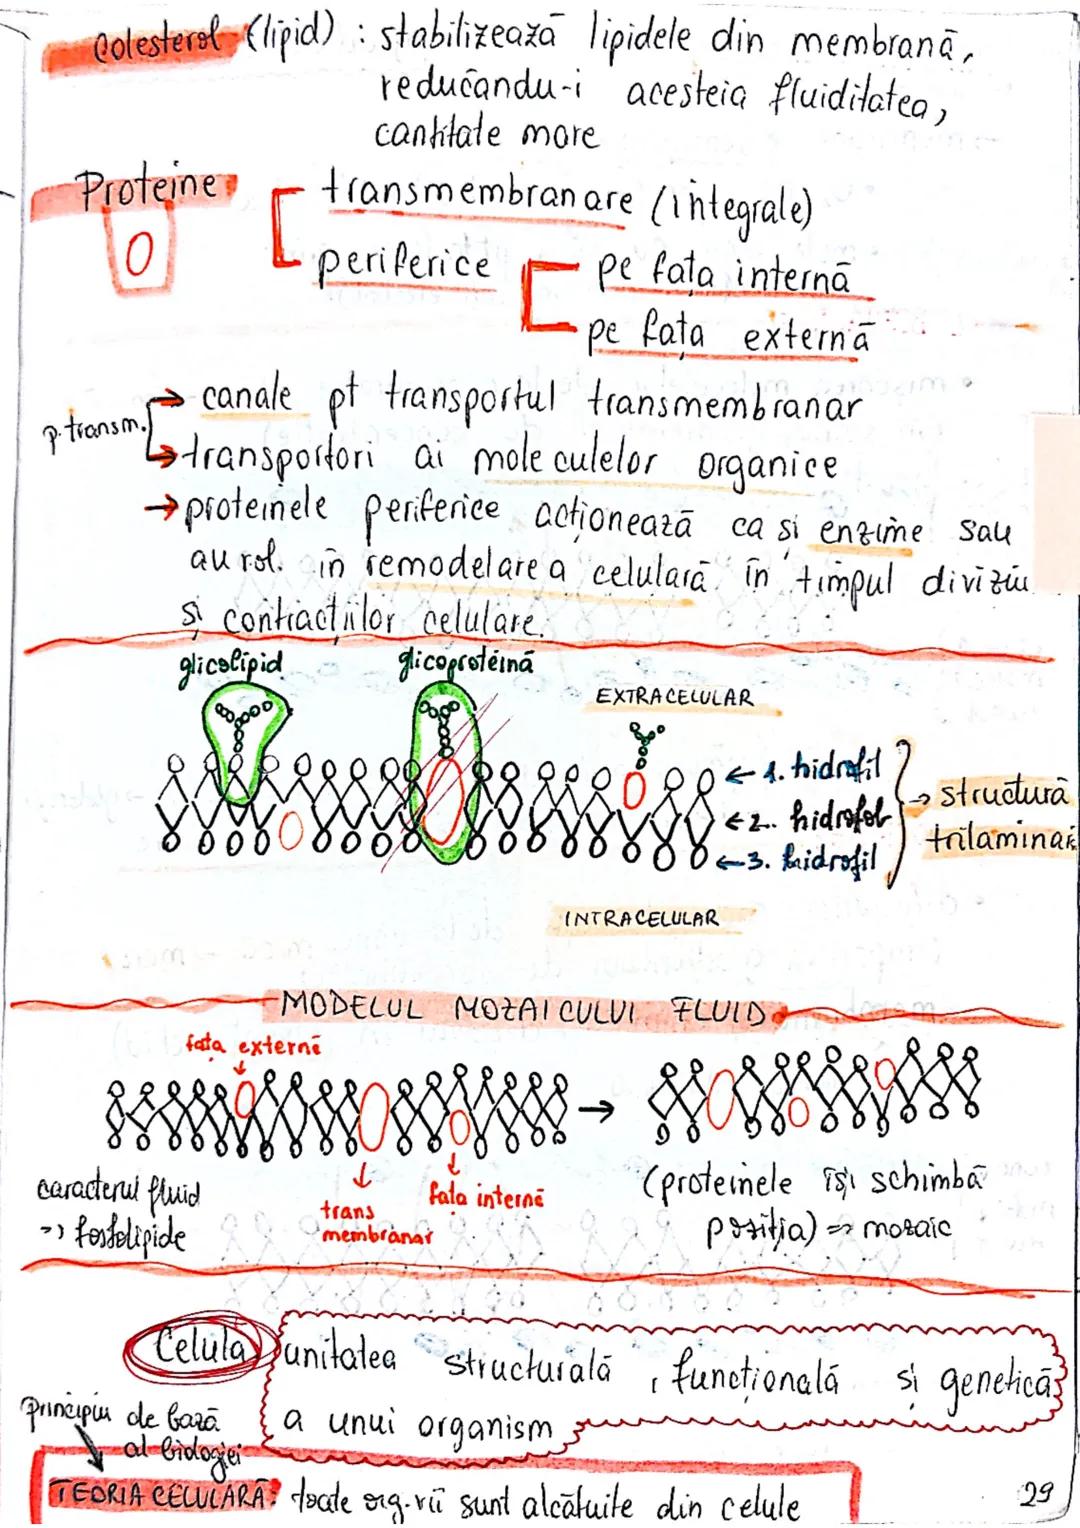 Colesterol (lipid) : stabilizează lipidele din membrană,
reducându-i acesteia fluiditatea,
cantitate mare
Proteine
transmembranare (integrale)
periferice
pe fața internă
pe fața externă
p. transm.
→ canale pt transportul transmembranar
→ transportori ai moleculelor organice
→ proteinele periferice acționează ca și enzime sau
au rol în remodelarea celulară în timpul diviziu
și contracțiilor celulare.
glicolipid
glicoproteină
EXTRACELULAR
← 1. hidrofil
← 2. hidrofob
← 3. hidrofil
→ structură
trilaminar
INTRACELULAR
MODELUL MOZAICULUI FLUID
fața externă
→
caracterul fluid
=> fosfolipide
trans
membranar
fața internă
(proteinele își schimbă
poziția) => mozaic
Celula
unitatea structurală, funcțională și genetică
a unui organism
principiu de bază
al biologiei
TEORIA CELULARĂ: toate org. vii sunt alcătuite din celule
29